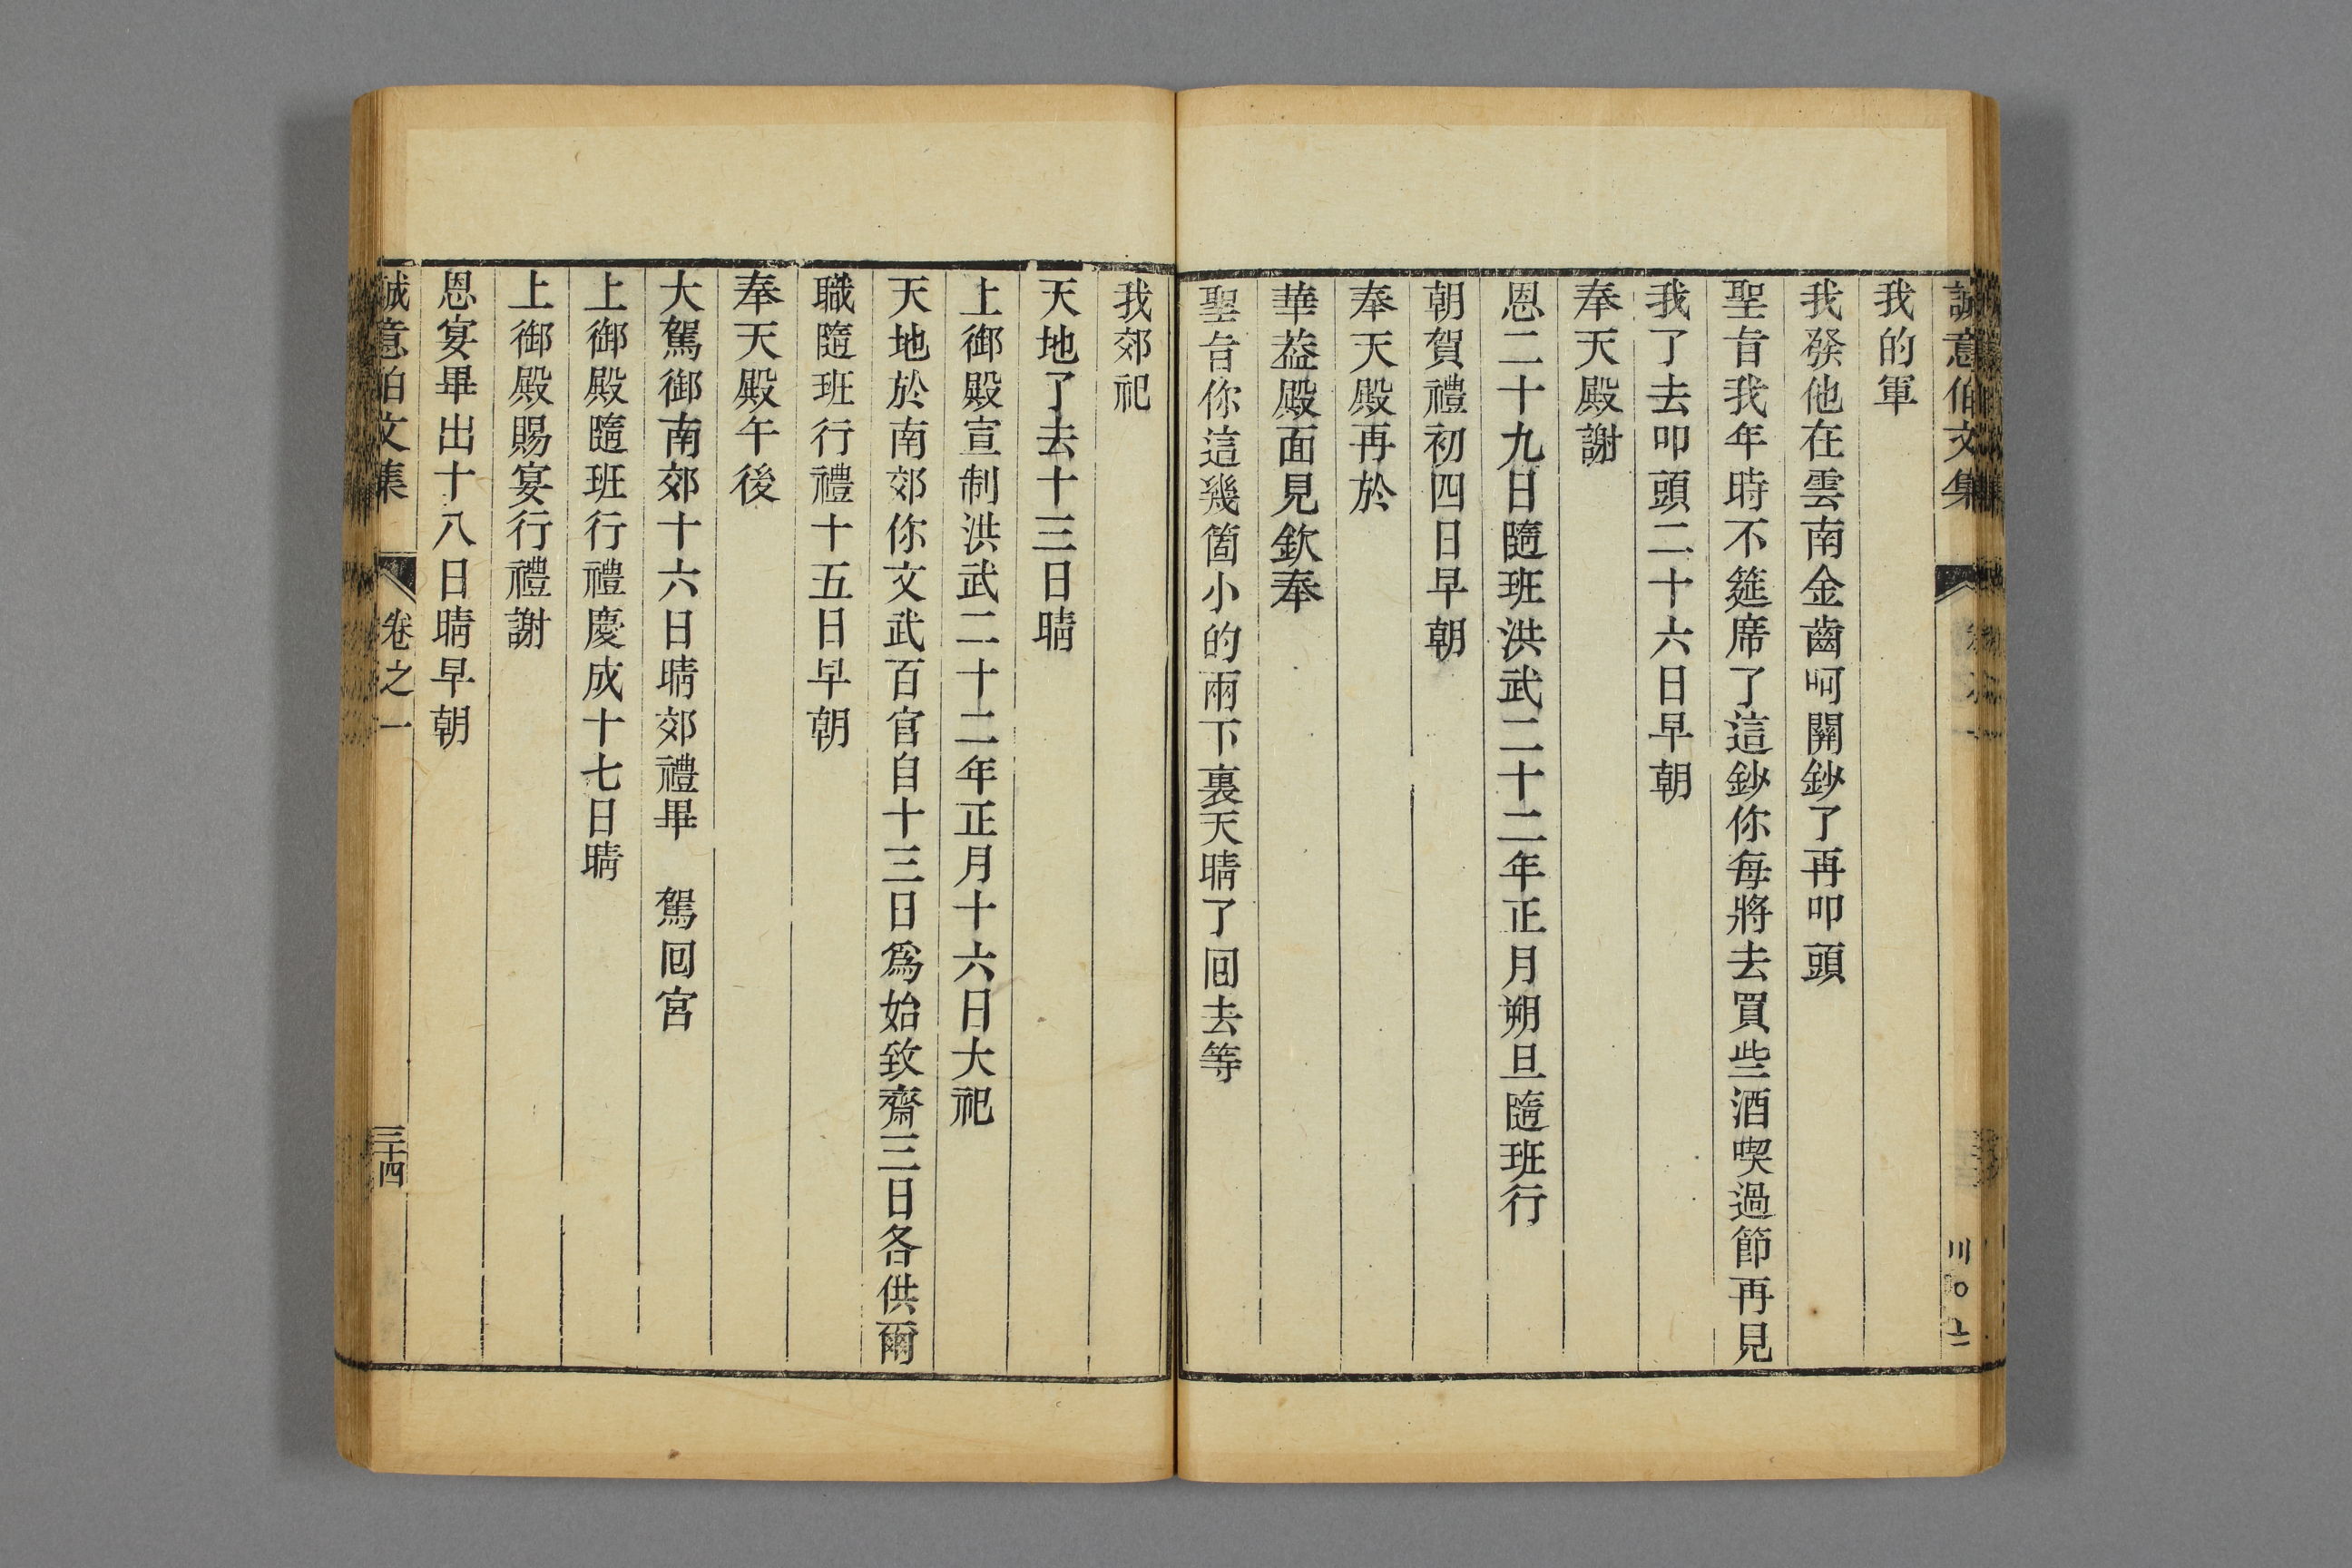 誠意伯文集
我的軍
我發他在雲南金齒呵關鈔了再叩頭
聖旨我年時不筵席了這鈔你每將去買些酒喫過節再見
我了去叩頭二十六日早朝
奉天殿謝
恩二十九日隨班洪武二十二年正月朔旦隨班行
朝賀禮初四日早朝
奉天殿再於
華葢殿面見欽奉
聖旨你這幾箇小的雨下裏天晴了囘去等
我郊祀
天地了去十三日晴
上御殿宣制洪武二十二年正月十六日大祀
天地於南郊你文武百官自十三日爲始致齋三日各供爾
職隨班行禮十五日早朝
奉天殿午後
大駕御南郊十六日晴郊禮畢　駕囘宮
上御殿隨班行禮慶成十七日晴
上御殿賜宴行禮謝
恩宴畢出十八日晴早朝
誠意伯文集　卷之一　三十四